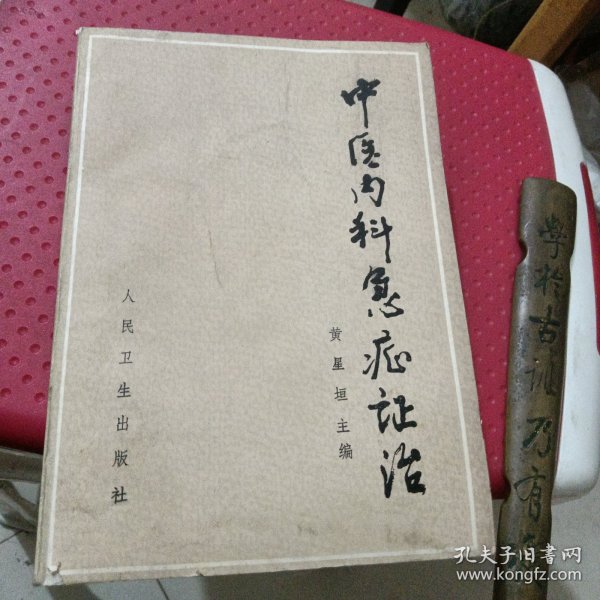 中医内科急症证治
黄星垣主编
人民卫生出版社
學於古训乃有
孔夫子旧书网
www.kongfz.com